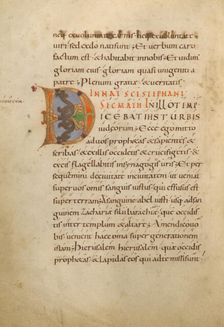 sed ex deo nati sunt; Et uerbum caro
factum est & habitauit in nobis et uidimus
gloriam eius gloriam quasi unigeniti a
patre Plenum gratiae & ueritatis.
IN NAT SCI STEPHANI
SEC MATH IN ILLO TEMP
DICEBAT IHS TURBIS
iudeorum; Ecce ego mitto
ad uos prophetas & sapientes &
scribas & ex illis occidetis & crucifigetis &
ex eis flagellabitis in synagogis uestris &
persequemini de ciuitate in ciuitatem ut ueniat
super uos omnis sanguis iustus qui effusus est
super terram a sanguine abel iusti usq; ad
sanguinem zachariae filii barachiae quem occidistis
inter templum & altare; Amen dico uobis
uenient haec omnia super generationem
istam; Hierusalem hierusalem quae occidis
prophetas & lapidas eos qui ad te missi sunt